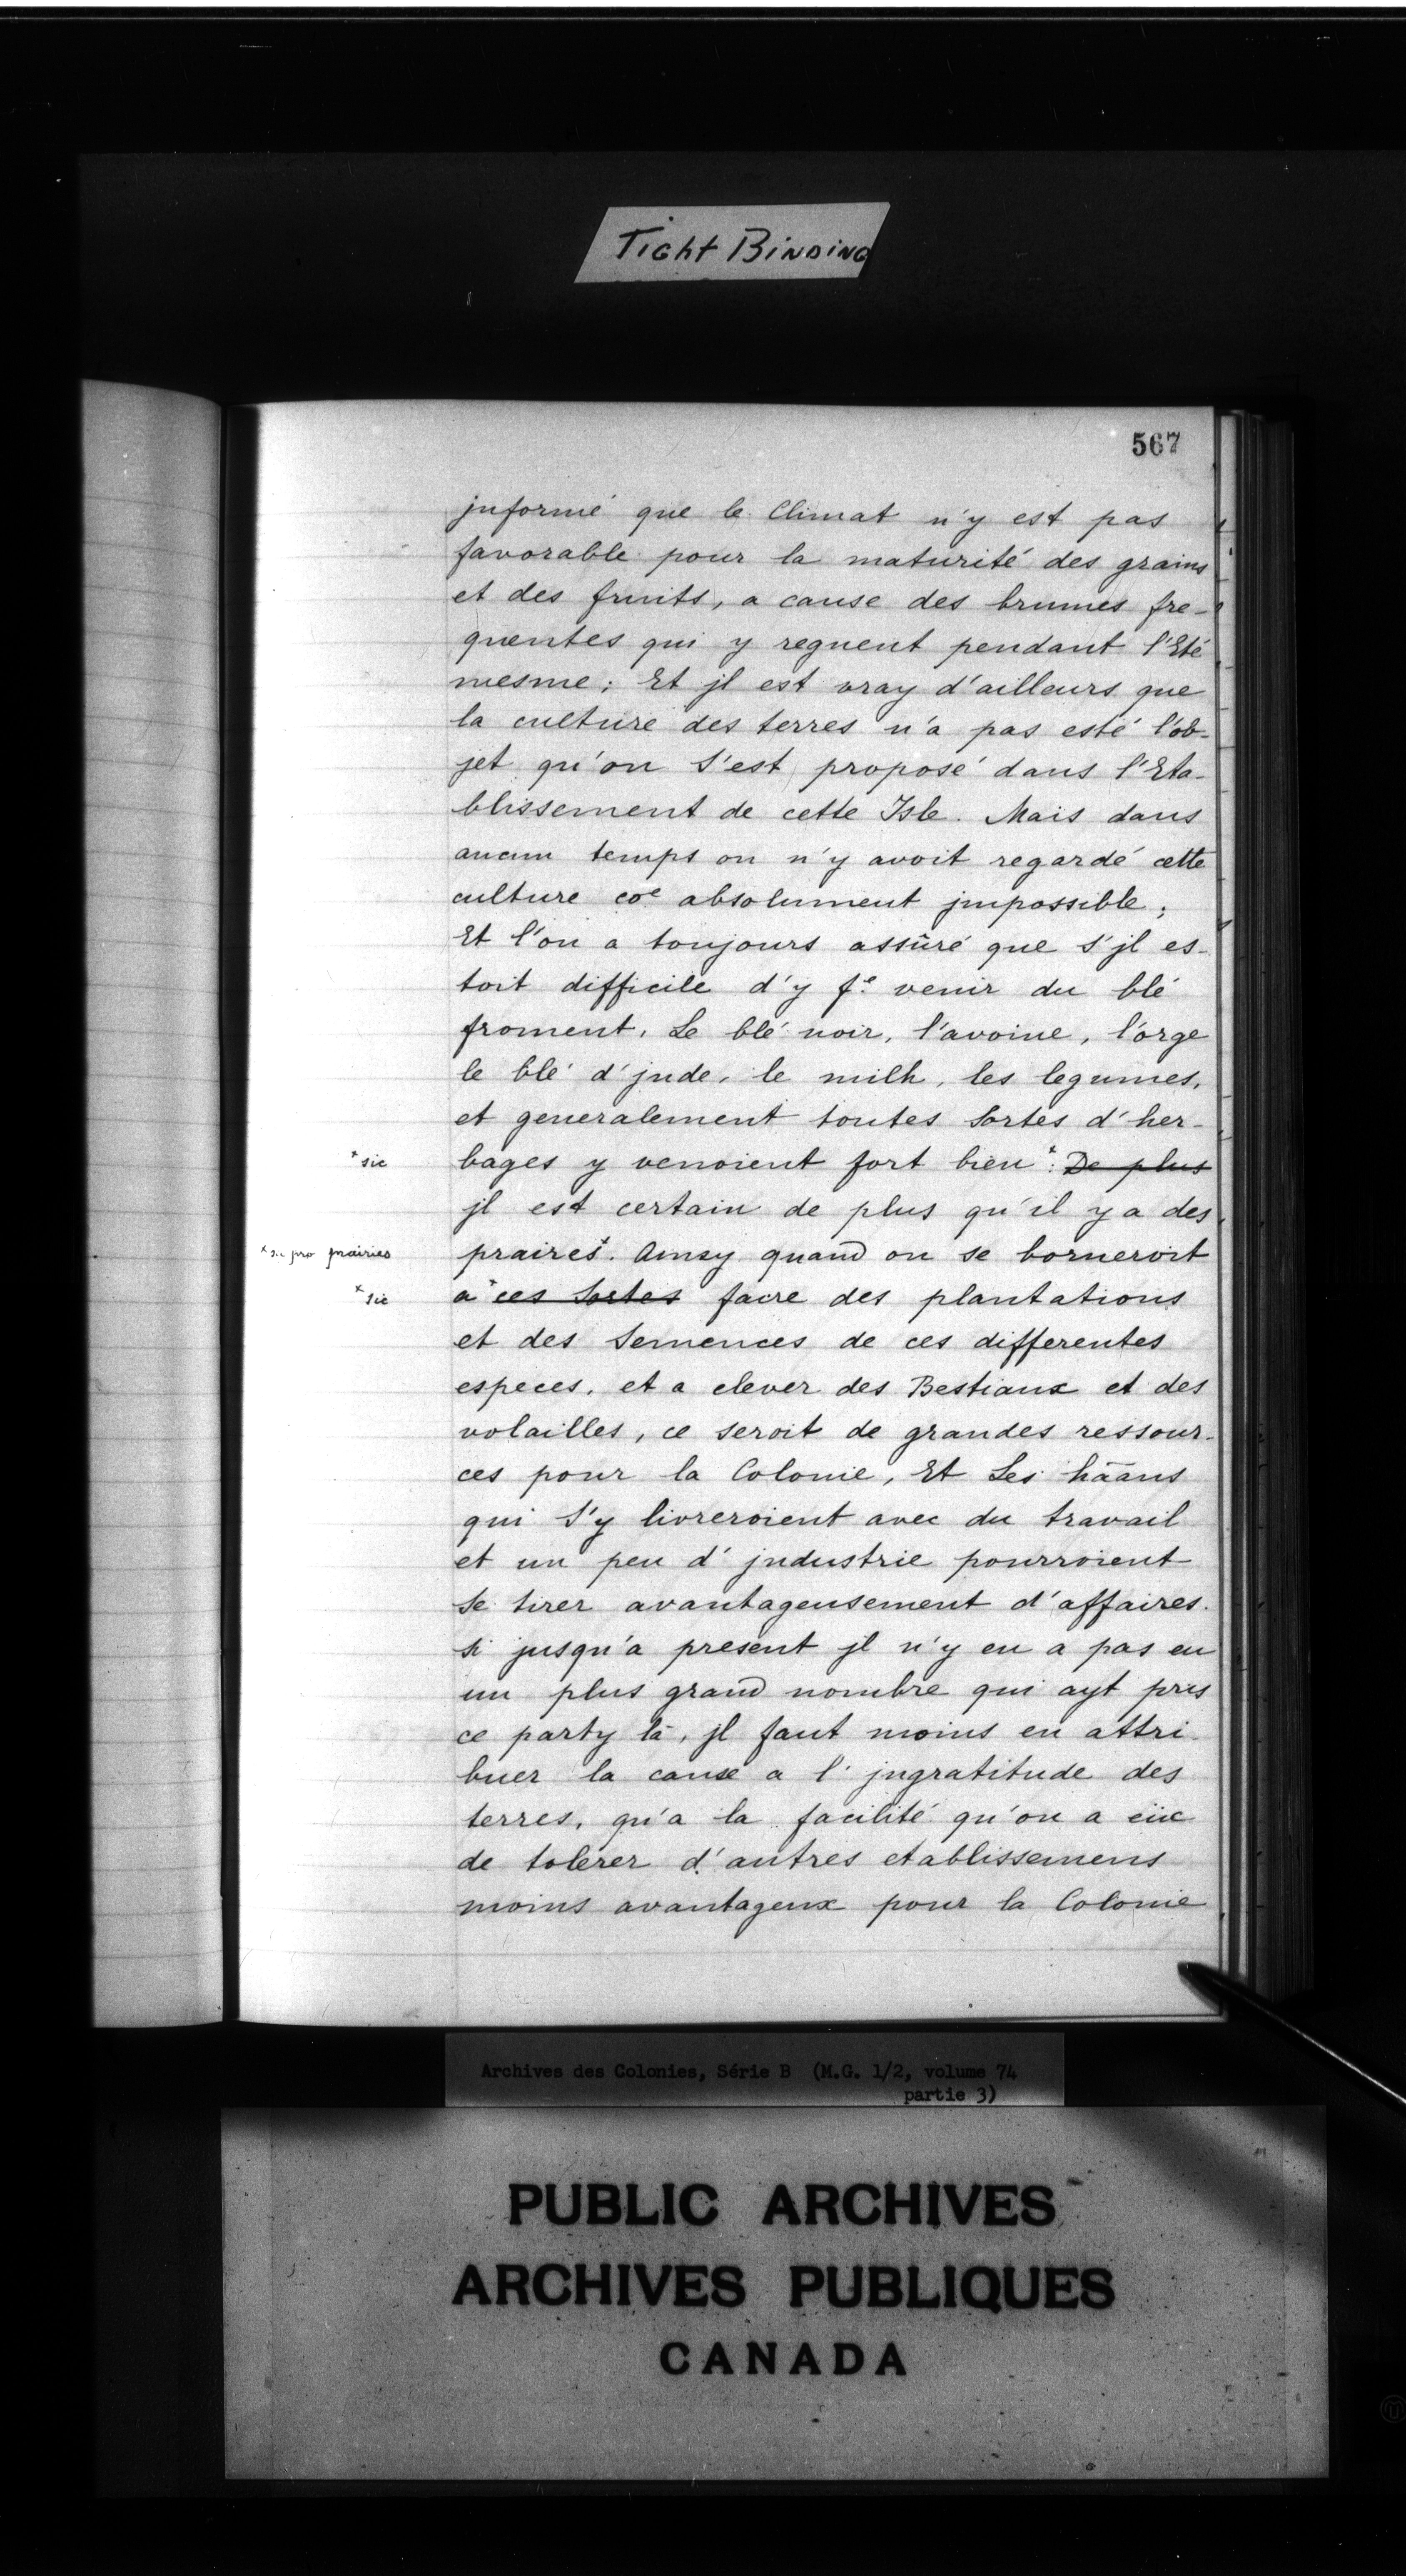 Tight Binding
567
jnformé que le Climat n'y est pas
favorable pour la maturité des grains
et des fruits, a cause des brumes fre-
quentes qui y regnent pendant l'Eté
mesme; Et jl est vray d'ailleurs que
la culture des terres n'a pas esté l'ob-
jet qu'on s'est proposé dans l'Eta-
blissement de cette Isle. Mais dans
aucun temps on n'y avoit regardé cette
culture coe absolument jmpossible;
Et l'on a toujours assûré que s'jl es-
toit difficile d'y fe venir du blé
froment, Le blé noir, l'avoine, l'orge
le blé d'jnde, le milh, les legumes,
et generalement toutes sortes d'her-
* sic bages y venoient fort bien*: De plus
jl est certain de plus qu'il y a des
* sic pro prairies praires*. Ainsy quand on se borneroit
* sic a* ces sortes faire des plantations
et des semences de ces differentes
especes, et a elever des Bestiaux et des
volailles, ce seroit de grandes ressour-
ces pour la Colonie, Et Les hãans
qui s'y livreroient avec du travail
et un peu d'jndustrie pourroient
se tirer avantageusement d'affaires.
si jusqu'a present jl n'y en a pas eu
un plus grand nombre qui ayt pris
ce party là, jl faut moins en attri-
buer la cause a l'jngratitude des
terres, qu'a la facilité qu'on a eüe
de tolerer d'autres etablissemens
moins avantageux pour la Colonie
Archives des Colonies, Série B (M.G. 1/2, volume 74
partie 3)
PUBLIC ARCHIVES
ARCHIVES PUBLIQUES
CANADA